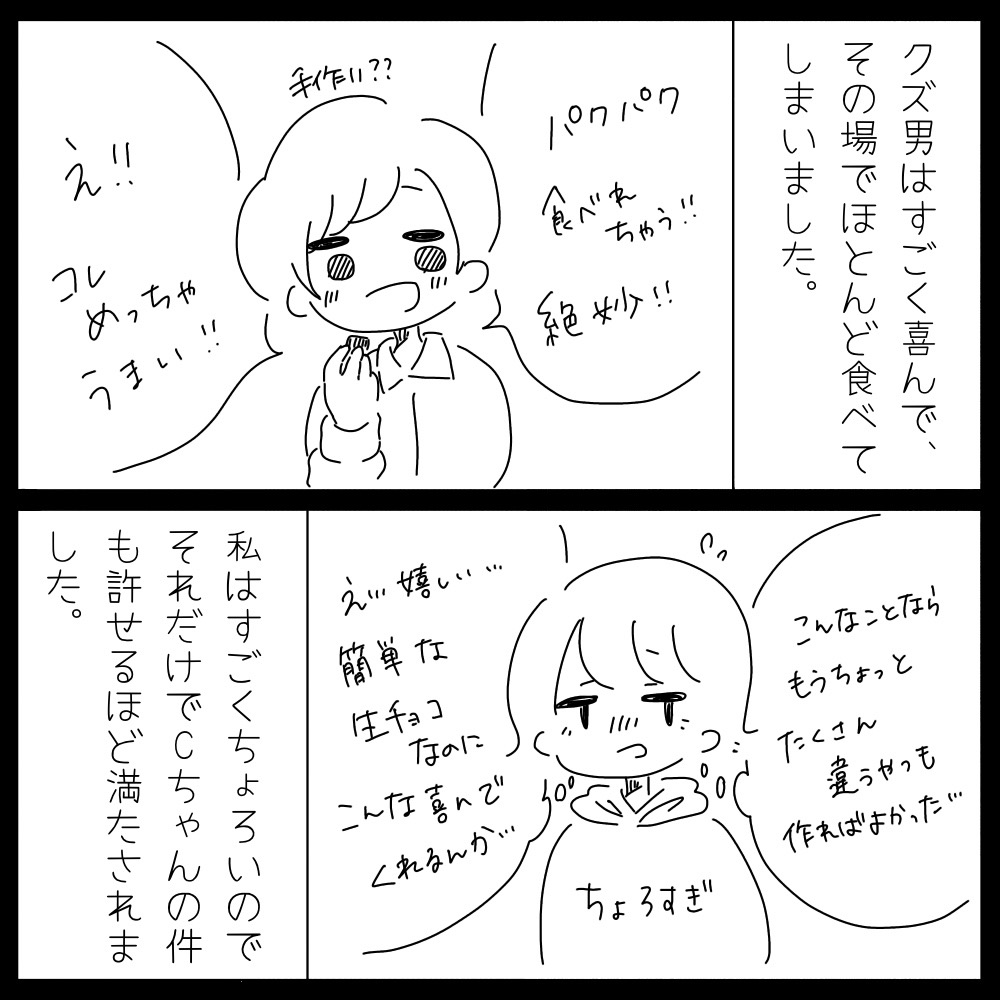 クズ男はすごく喜んで、
その場でほとんど食べて
しまいました。
パクパク
食べれ
ちゃう!!
絶妙!!
手作り??
え!!
コレ
めっちゃ
うまい!!
こんなことなら
もうちょっと
たくさん
違うやつも
作ればよかった…
え…嬉しい…
簡単な
生チョコ
なのに
こんな喜んで
くれるんか…
ちょろすぎ
私はすごくちょろいので
それだけでCちゃんの件
も許せるほど満たされま
した。